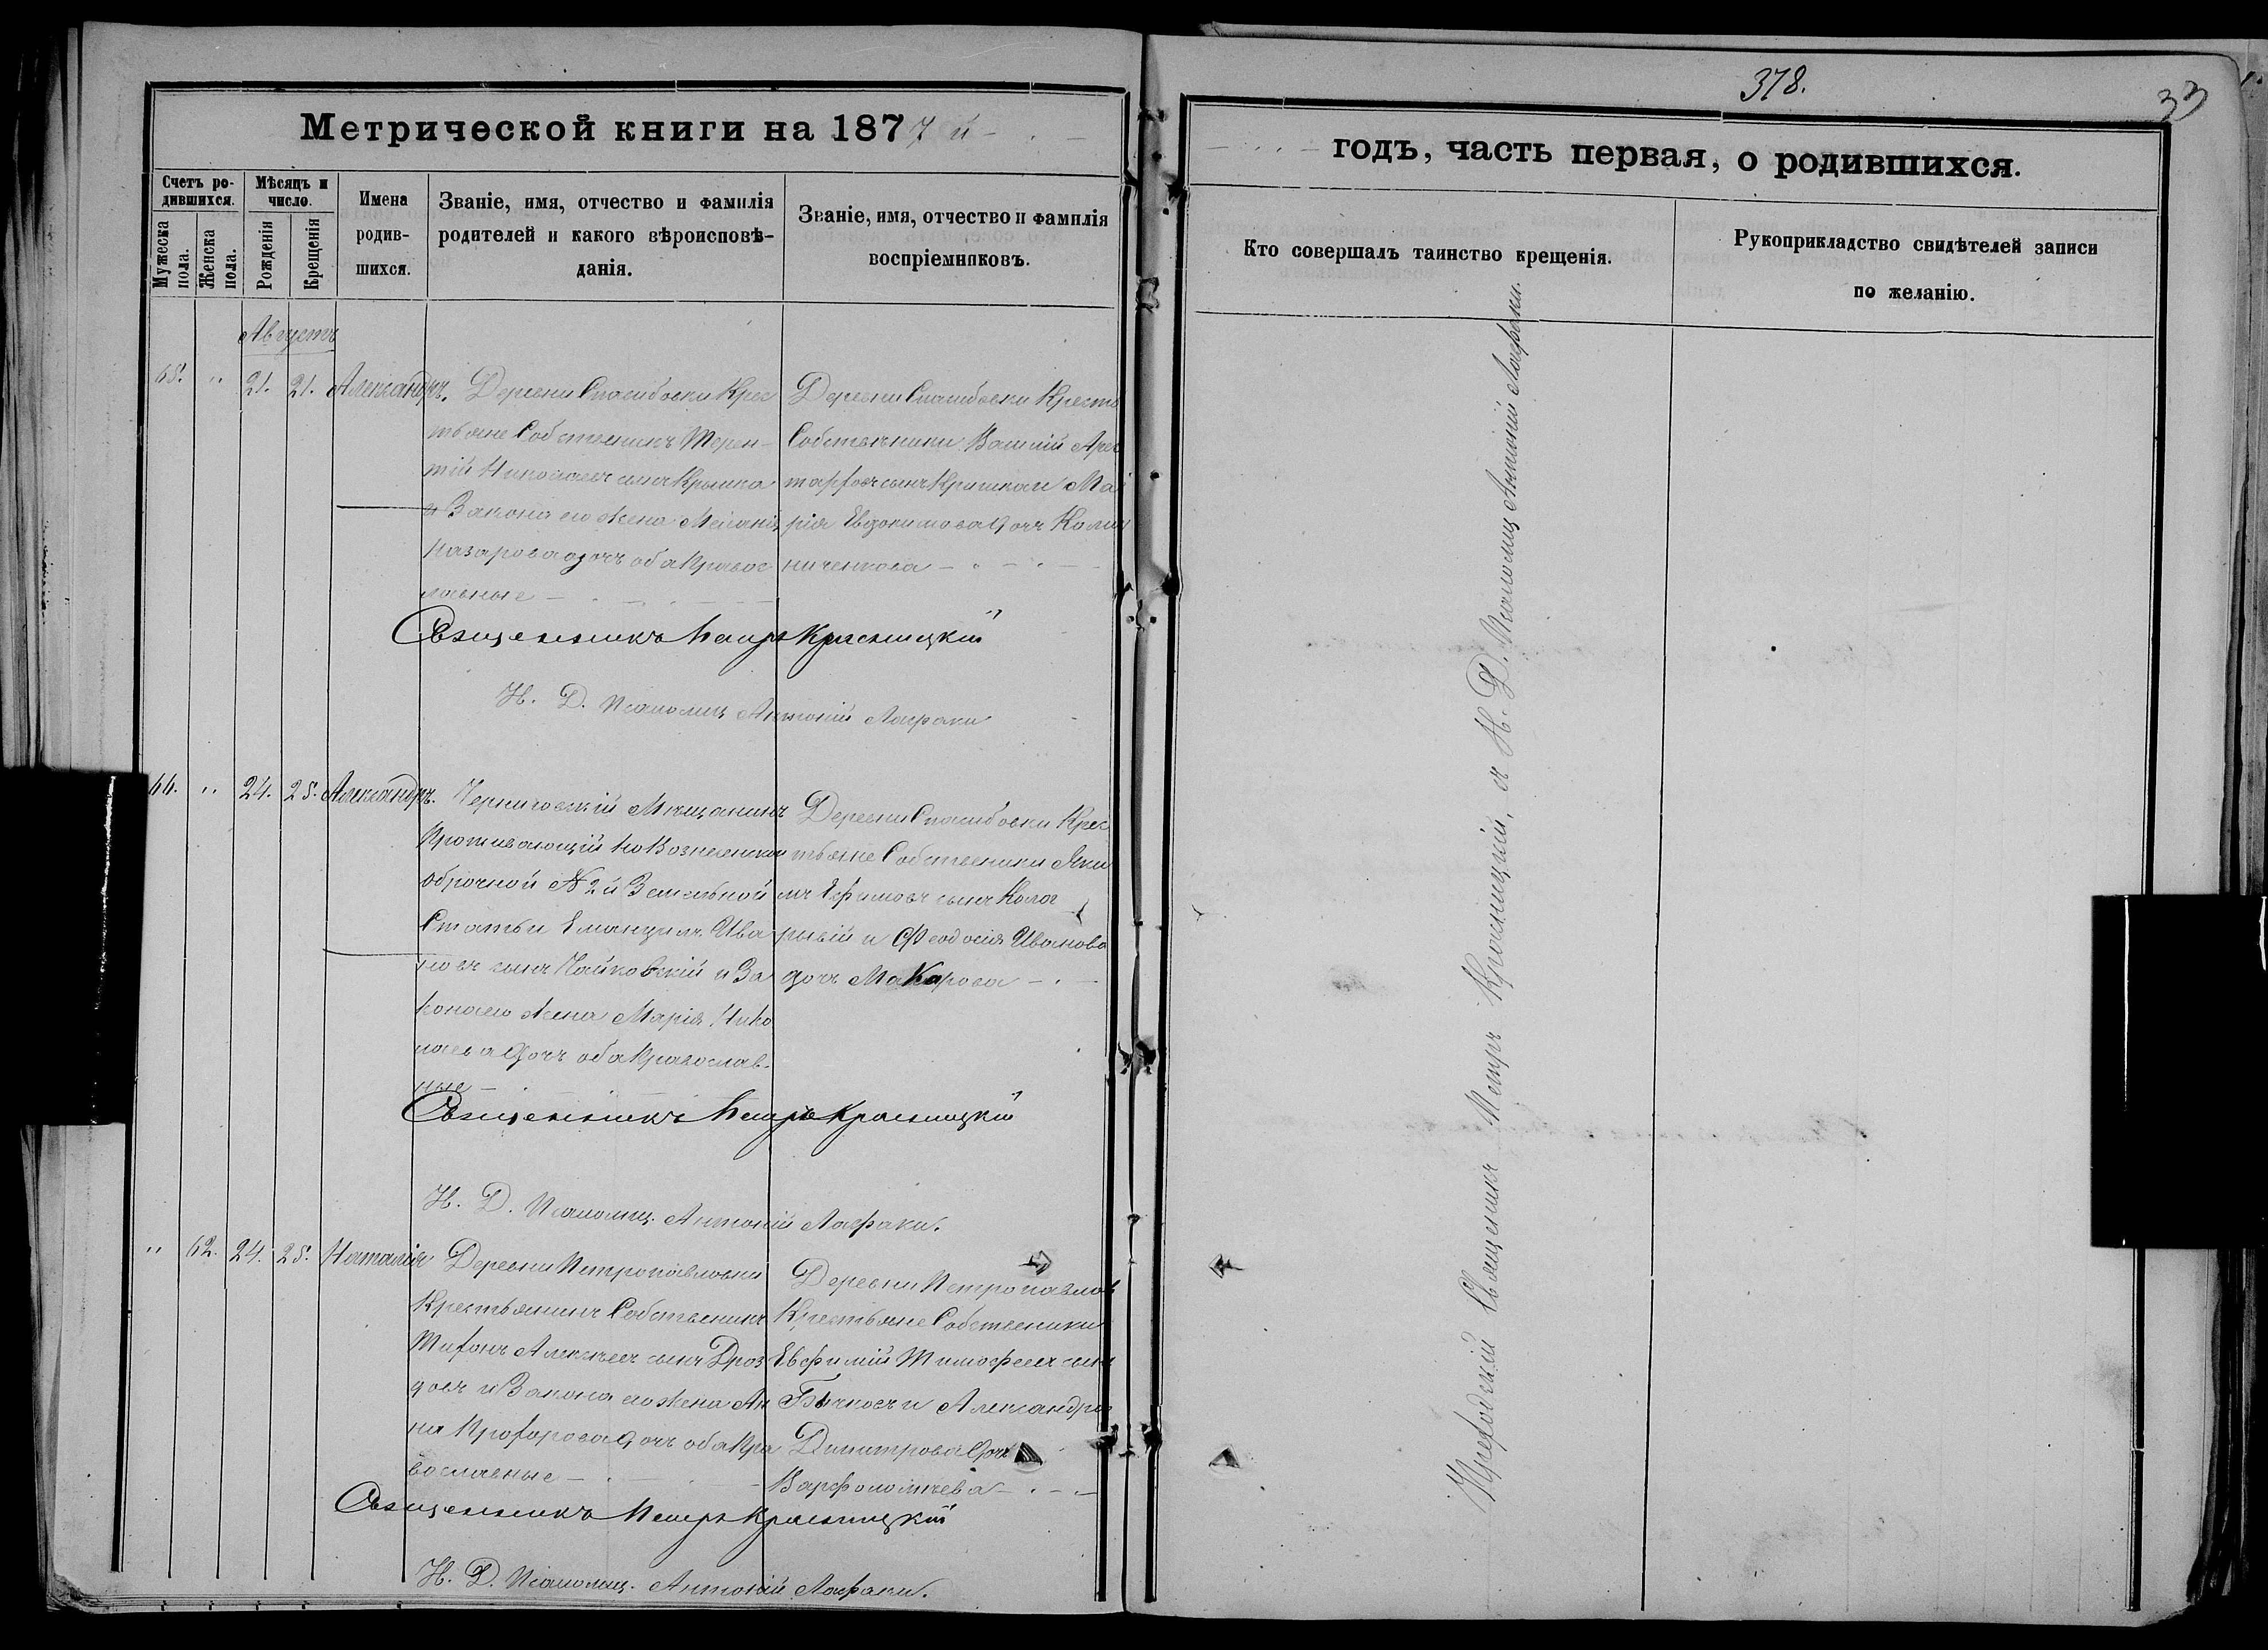 378.
33
Метрической книги на 1877 й
годъ, часть первая, о родившихся.
Счетъ ро-
дившихся.
Мужеска
пола.
Женска
пола.
Мѣсяцъ и
число.
Рожденія
Крещенія
Имена
родив-
шихся.
Званіе, имя, отчество и фамилія
родителей и какого вѣроисповѣ-
данія.
Званіе, имя, отчество и фамилія
воспріемниковъ.
Кто совершалъ таинство крещенія.
Рукоприкладство свидѣтелей записи
по желанію.
Августъ
65. " 21. 21. Александръ.
Деревни Спасибовки Крес
тьяне Собственникъ Терен-
тій Николаевъ сынъ
и Закона его жена Меланія
Назарова дочь оба Правос
лавные
Деревни Спасибовки Кресть
Собственники Василій Арис
тарховъ сынъ и Ма
рія Евдокимова дочь Коли
ниченкова
Священникъ Петръ Красницкій
И. Д. Псаломщ Антоній Лафаки
66. " 24. 25. Александръ.
Черниговскій Мѣщанинъ
Проживающій на Вознесенской
оброчной № 2й Земельной
Статьи Емануилъ Ива
новъ сынъ Чайковскій и За
кона его жена Марія Нико
лаева дочь оба Православ-
ные
Деревни Спасибовки Крес
тьяне Собственники Яки
мъ Ефимовъ сынъ
и Феодосія Иванова
дочь Макарова
Священникъ Петръ Красницкій
И. Д. Псаломщ. Антоній Лафаки.
" 62. 24. 25. Наталія
Деревни Петропавловки
Крестьянинъ Собственникъ
Тихонъ Алексѣевъ сынъ Дроз
довъ и Закона его жена Ан
на Прохорова дочь оба Пра
вославные
Деревни Петропавлов
Крестьяне Собственники
Евфимій Тимофеевъ сынъ
Бычковъ и Александра
Димитрова дочь
Варфоломѣева
Священникъ Петръ Красницкій
И. Д. Псаломщ. Антоній Лафаки.
Священникъ Петръ Красницкій, и И. Д. Псаломщ Антоній Лафаки.